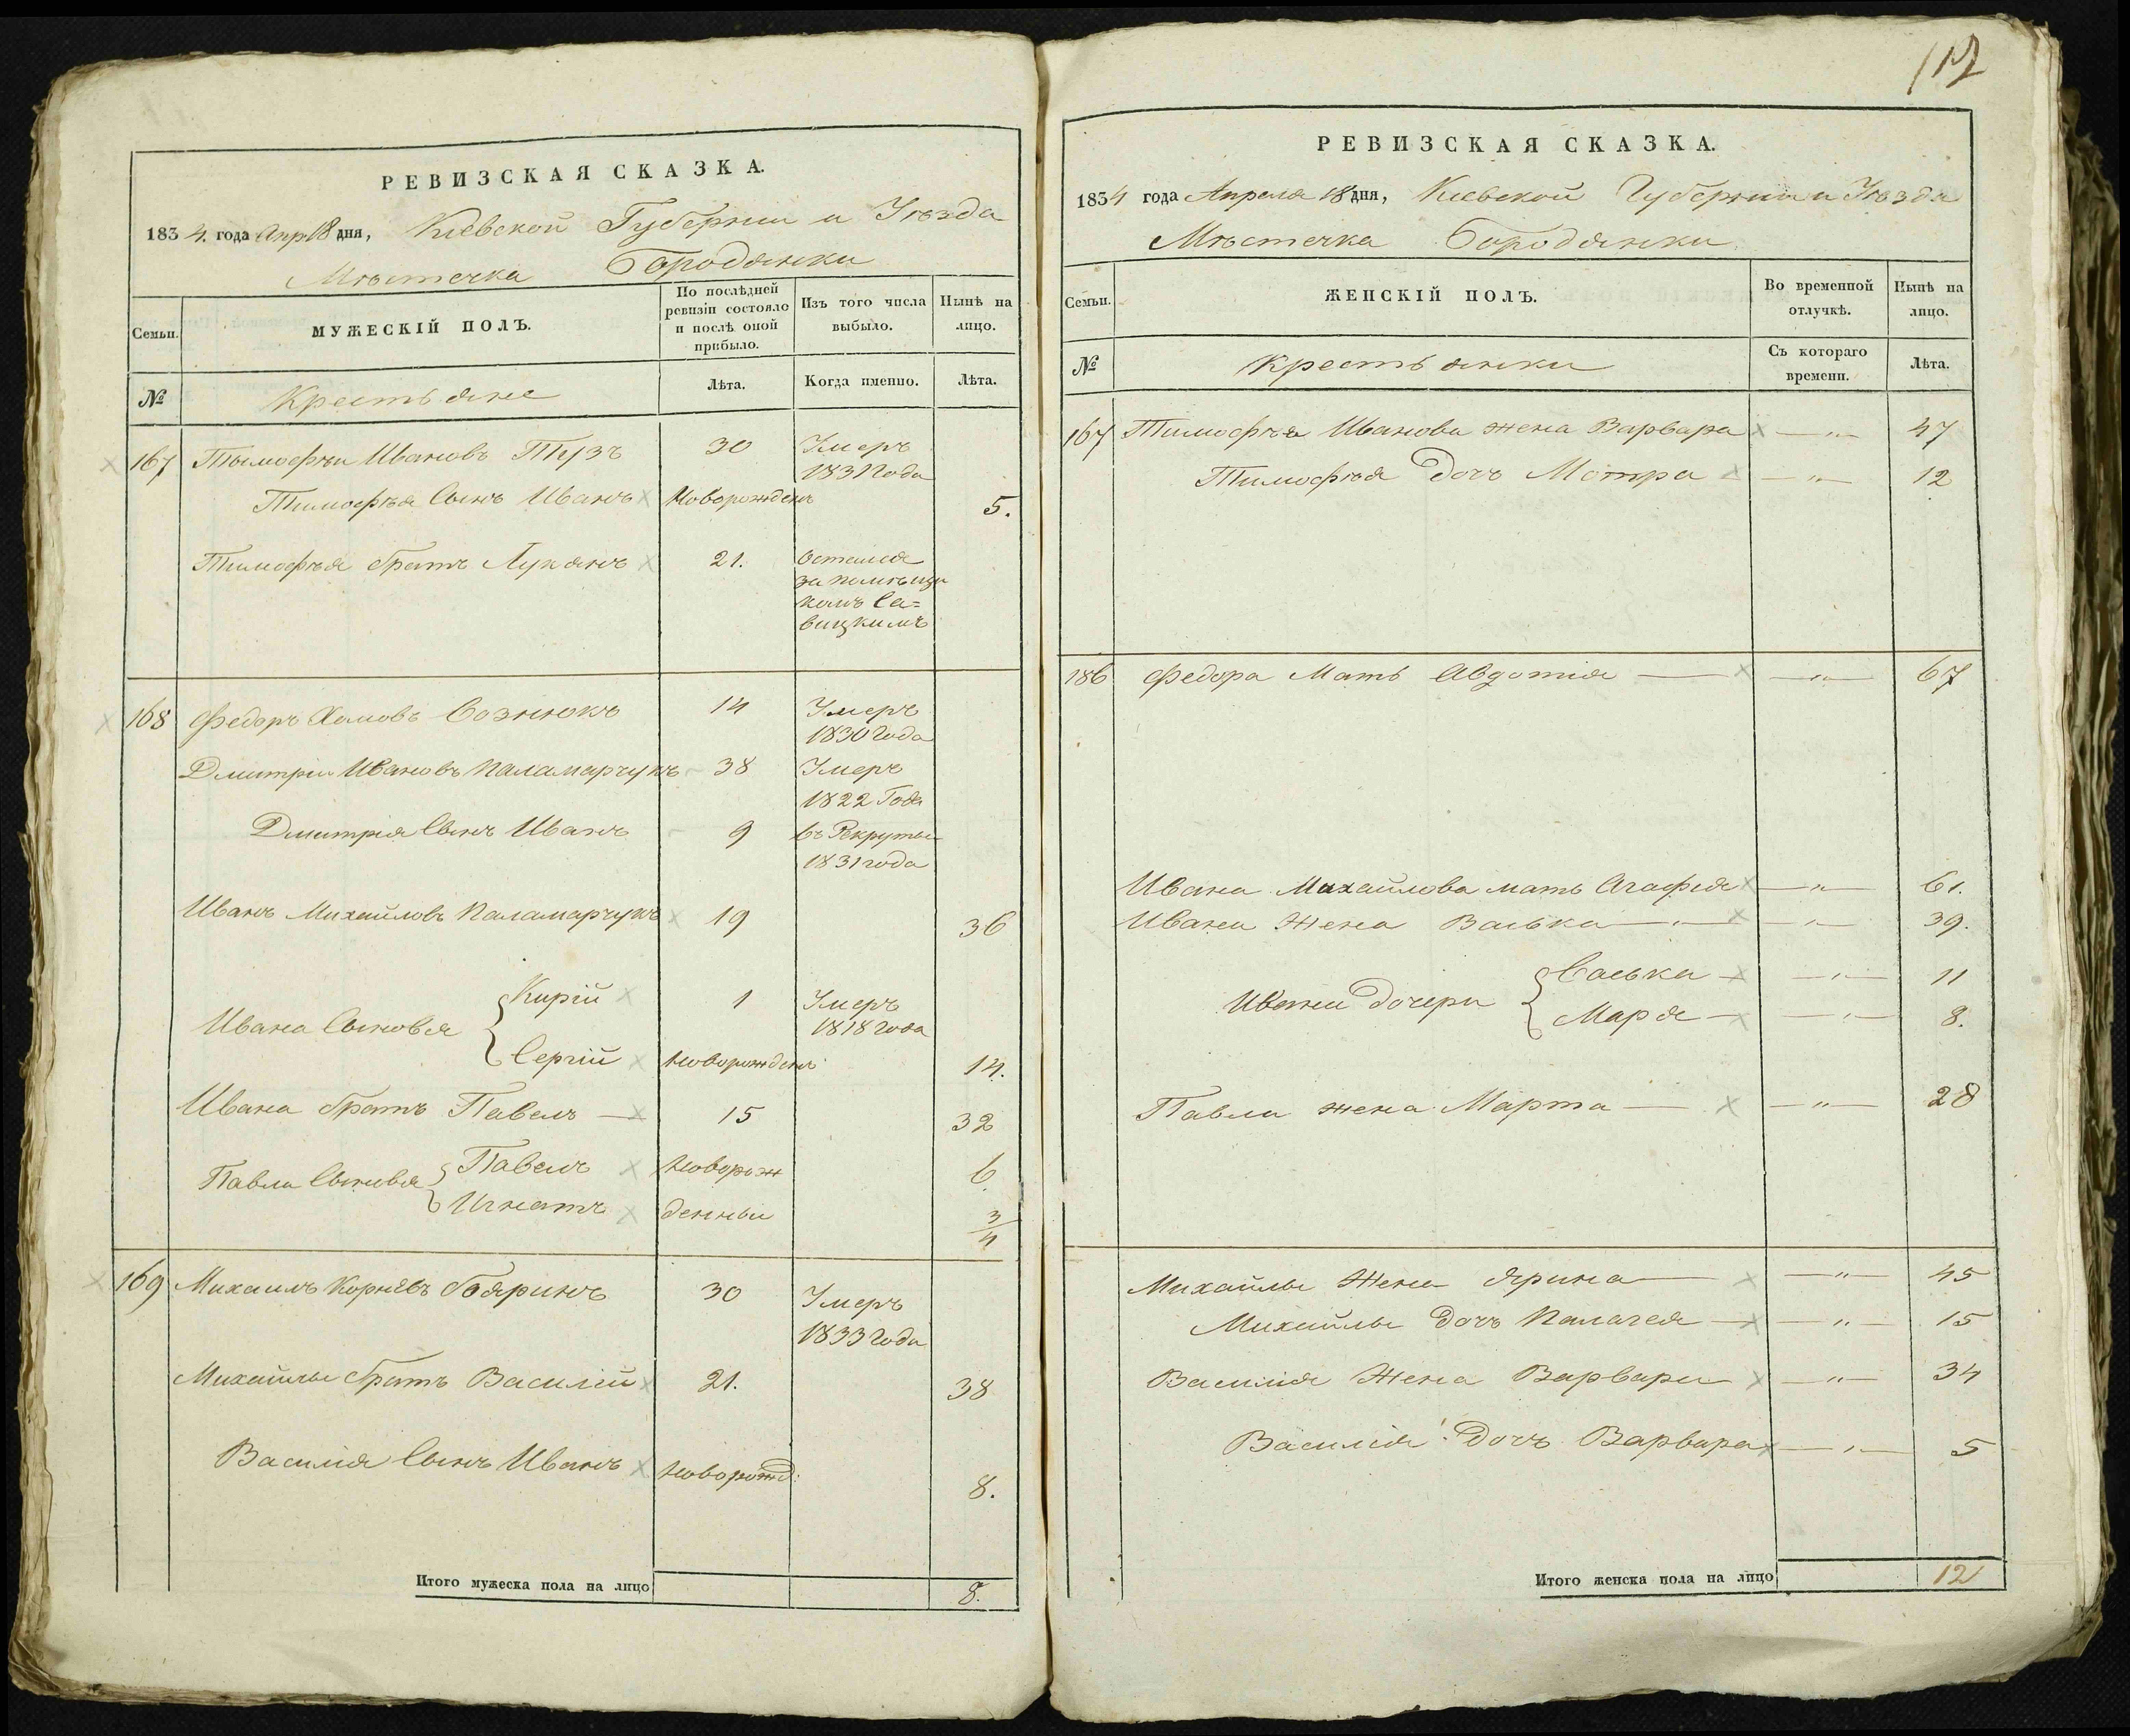 РЕВИЗСКАЯ СКАЗКА.
1834. года Апр 18 дня, Кіевской Губерніи и Уѣзда
Мѣстечка Бородянки
Семьи. МУЖЕСКІЙ ПОЛЪ. По послѣдней ревизіи состояло и послѣ оной прибыло. Изъ того числа выбыло. Нынѣ на лицо.
№ Крестьяне Лѣта. Когда именно. Лѣта.
167 Тимофѣи Ивановъ Тузъ 30 Умеръ
1831 года
Тимофѣя Сынъ Иванъ Новорожденъ 5.
Тимофѣя братъ Лукянъ 21. Остался
за помѣщи
комъ Са=
вицкимъ
168 Федоръ Хомовъ Сознюкъ 14 Умеръ
1830 года
Дмитріи Ивановъ Паламарчукъ 38 Умеръ
1822 Года
Дмитрія Сынъ Иванъ 9 Въ Рекруты
1831 года
Иванъ Михайловъ Паламарчукъ 19 36
Ивана Сыновья Кирій 1 Умеръ
1818 года
Сергій Новорожденъ 14.
Ивана братъ Павелъ 15 32
Павла Сыновья Павелъ Новорож 6
Игнатъ денныи 3/4
169 Михаилъ Корнѣвъ Бояринъ 30 Умеръ
1833 года
Михайлы братъ Василій 21. 38
Василія Сынъ Иванъ Новорожд: 8.
Итого мужеска пола на лицо 8.
РЕВИЗСКАЯ СКАЗКА.
1834 года Апреля 18 дня, Кіевской Губерніи и Уѣзда
Мѣстечка Бородянки
Семьи. ЖЕНСКІЙ ПОЛЪ. Во временной отлучкѣ. Нынѣ на лицо.
№ Крестьянки Съ котораго времени. Лѣта.
167 Тимофѣя Иванова жена Варвара — „ — 47
Тимофѣя Дочь Мотра — „ — 12
186 Федора Мать Авдотія — „ — 67
Ивана Михайлова мать Агафія — „ — 61.
Ивана Жена Васька — „ — 39.
Ивана Дочери Саська — „ — 11
Маря — „ — 8.
Павла жена Марта — „ — 28
Михайлы Жена Ярина — „ — 45
Михайлы Дочь Палагея — „ — 15
Василія Жена Варвара — „ — 34
Василія Дочь Варвара — „ — 5
Итого женска пола на лицо 12